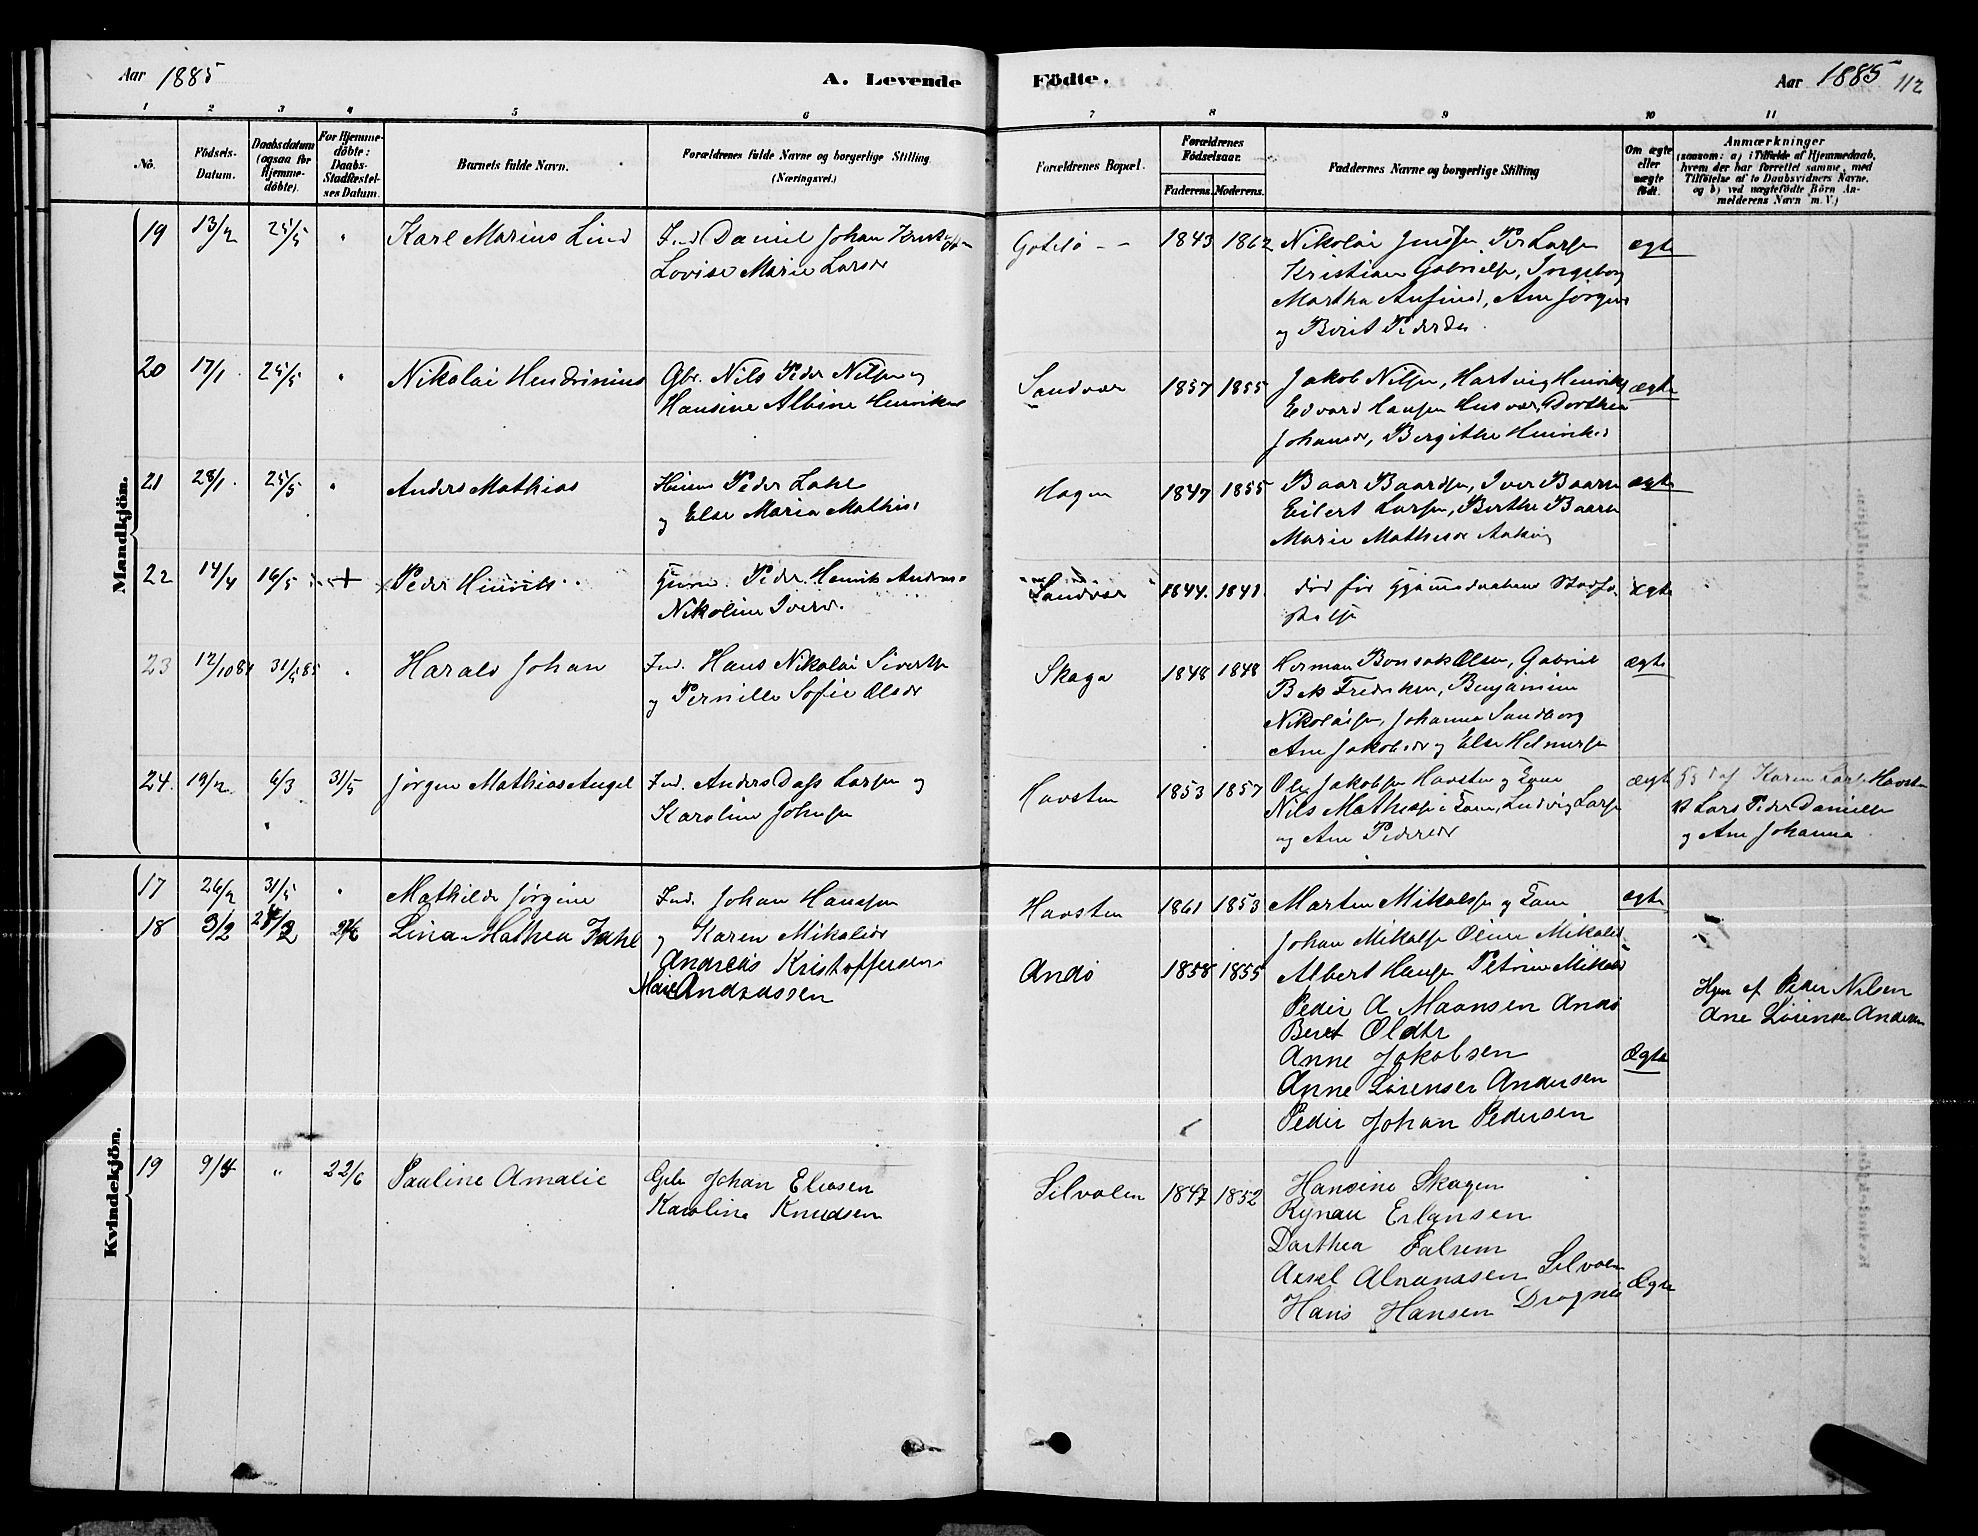 Aar 1885
A. Levende
Födte.
Aar 1885
112
1 2 3 4 5 6 7 8 9 10 11
No.
Födsels-Datum.
Daabsdatum (ogsaa for Hjemme-döbte).
For Hjemme-döbte: Daabs-Stadfæstel-ses Datum.
Barnets fulde Navn.
Forældrenes fulde Navne og borgerlige Stilling
(Næringsvei.)
Forældrenes Bopæl.
Forældrenes Födselsaar.
Faderens. Moderens.
Faddernes Navne og borgerlige Stilling
Om ægte eller uægte födt.
Anmærkninger
(saasom: a) i Tilfælde af Hjemmedaab,
hvem der har forrettet samme, med
Tilföielse af to Daabsvidners Navne,
og b) ved uægtefödte Börn An-
melderens Navn m. V.)
Mandkjön.
19 13/2 25/5 " Karl Marius Lind
Ind Daniel Johan
Lovise Marie Larsd
1843 1862
Nikolai Per Larsen
Kristian Gabrielsen, Ingeborg
Martha Ane Jørgens
og Berit Pedersd
ægte
20 17/1 25/5 " Nikolai Hendrinius
Gbr. Nils Peder Nilsen og
Hansine Albine Henriks
Sandvær 1857 1855
Jakob Nilsen, Hartvig Henriks
Edvard Hansen Husvær, Dorthea
Johansd, Bergithe Henriks
ægte
21 28/1 25/5 " Anders Mathias
Peder
og Else Maria Mathis
Hagen 1847 1855
Baar Baardsen, Iver Baars
Eilert Larsen, Berthe Baars
Marie Mathisd
ægte
22 14/4 16/5 + Peder Henrik
Peder Henrik Anders
Nikoline Iversd.
Sandvær 1844. 1841.
død før
ægte
23 12/10 84 31/5 85 " Harald Johan
Ind. Hans Nikolai Sivertsen
og Pernille Sofie Olsdr
Skage 1848 1848
Herman Bonsak Olsen, Gabriel
Bek Fredriksen, Benjamin
Nikolaisen, Johanna Sandberg
Ane Jakobsdr og Else Helmersen
ægte
24. 19/2 6/3 31/5 Jørgen Mathias Angel
Ind. Anders Dass Larsen og
Karoline Johnsen
Havsten 1853 1857
Ole Jakobsen Havsten og Kone
Nils Mathisen Kone, Ludvig Larsen
og Ane Pedersdr
ægte
af Karen Havsten
Lars Peder Danielsen
og Ane Johanna
Kvindekjön.
17 26/2 31/5 " Mathilde Jørgine
Ind. Johan Hansen
og Karen Mikalsdr
Havsten 1861 1853
Morten Mikalsen og Kone
Johan Mikalsen Oline Mikals
Albert Hansen Petrine Mikals
ægte
18 3/2 2/6 Lina Mathea
Andreas Kristoffersen
Marie Andreassen
Andø 1858 1855
Peder A Maansen Andø
Beret Oldtr
Anne Jakobsen
Anne Lorensen Andersen
Peder Johan Pedersen
Ægte
Hjem af Peder Nilsen
Ane Lorensen Andersen
19 9/4 " 22/6 Pauline Amalie
Gbr Johan Eliasen
Karoline Knudsen
Silvalen 1847 1852
Hansine Skagen
Erlansen
Dorthea
Axsel Silvalen
Hans Hansen
Ægte